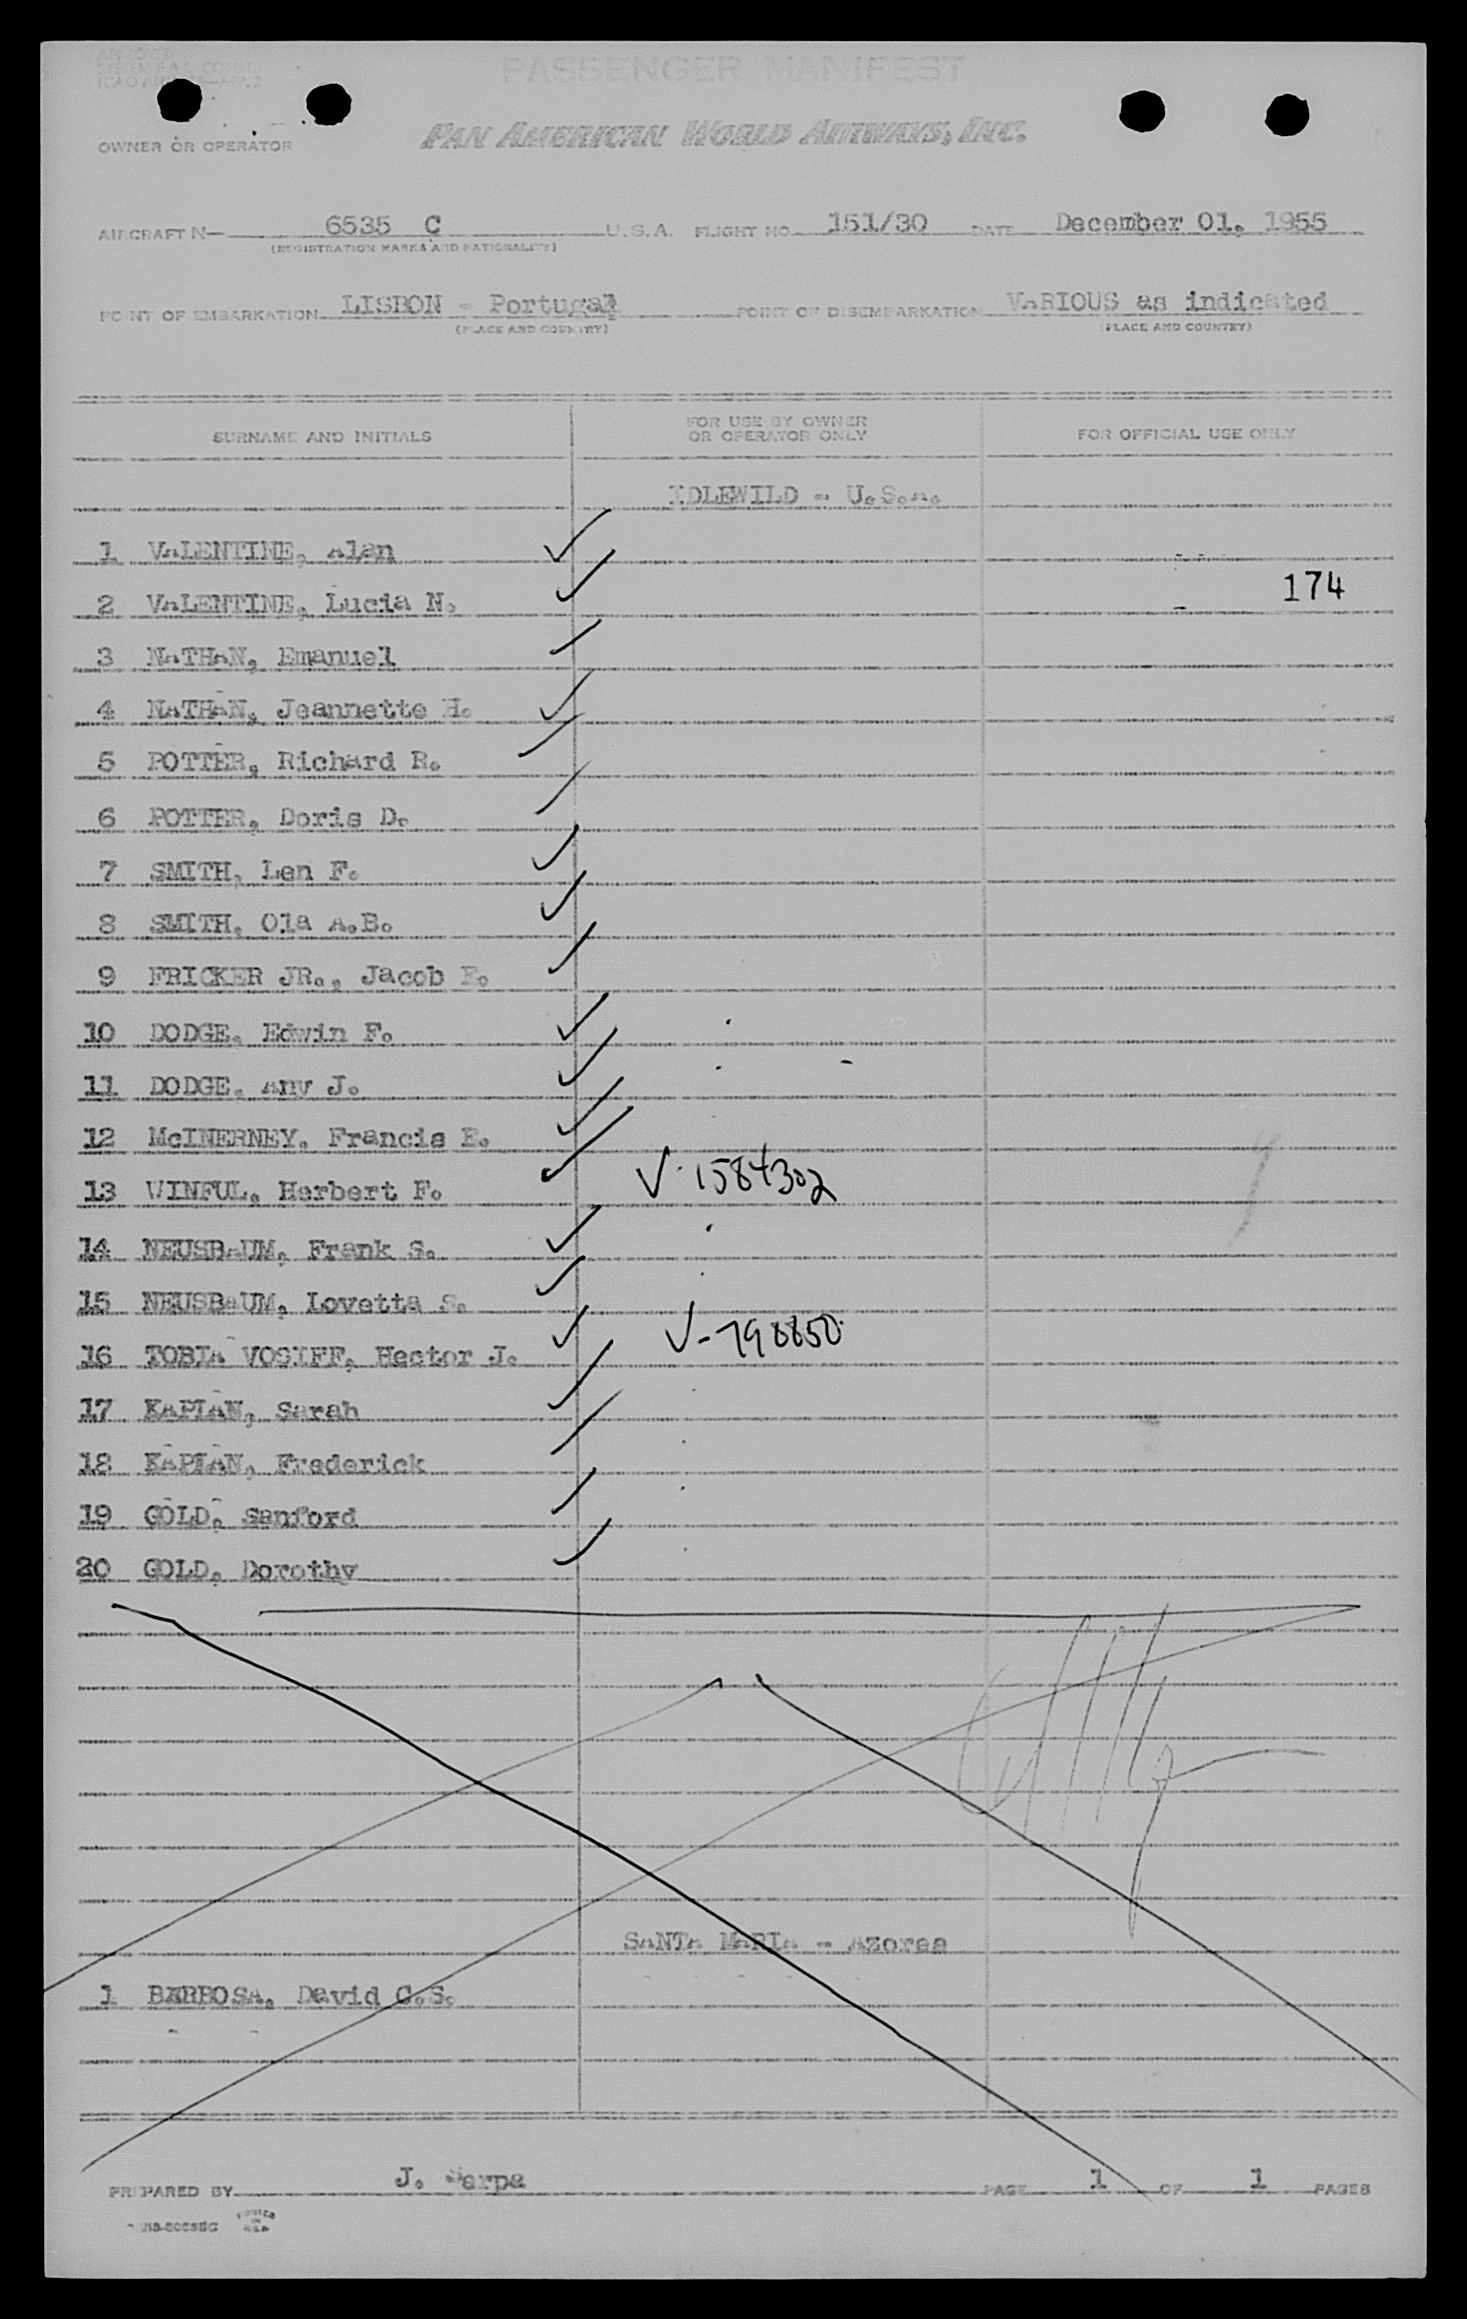 PASSENGER MANIFEST
OWNER OR OPERATOR PAN AMERICAN WORLD AIRWAYS, INC.
AIRCRAFT N— 6535 C U.S.A. FLIGHT NO. 151/30 DATE December 01, 1955
(REGISTRATION MARKS AND NATIONALITY)
POINT OF EMBARKATION LISBON - Portugal POINT OF DISEMBARKATION VARIOUS as indicated
(PLACE AND COUNTRY) (PLACE AND COUNTRY)
SURNAME AND INITIALS FOR USE BY OWNER OR OPERATOR ONLY FOR OFFICIAL USE ONLY
IDLEWILD - U.S.A.
1 VALENTINE, Alan
174
2 VALENTINE, Lucia N.
3 NATHAN, Emanuel
4 NATHAN, Jeannette H.
5 POTTER, Richard R.
6 POTTER, Doris D.
7 SMITH, Len F.
8 SMITH, Ola A.B.
9 FRICKER JR., Jacob F.
10 DODGE, Edwin F.
11 DODGE, Any J.
12 McINERNEY, Francis E.
13 WINFUL, Herbert F. V-1584302
14 NEUSBAUM, Frank S.
15 NEUSBAUM, Lovetta S.
16 TOBIA VOSIFF, Hector J. V-798850
17 KAPLAN, Sarah
18 KAPLAN, Frederick
19 GOLD, Sanford
20 GOLD, Dorothy
SANTA MARIA - Azores
1 BARBOSA, David C.S.
PREPARED BY J. PAGE 1 OF 1 PAGES
PRINTED IN U.S.A.